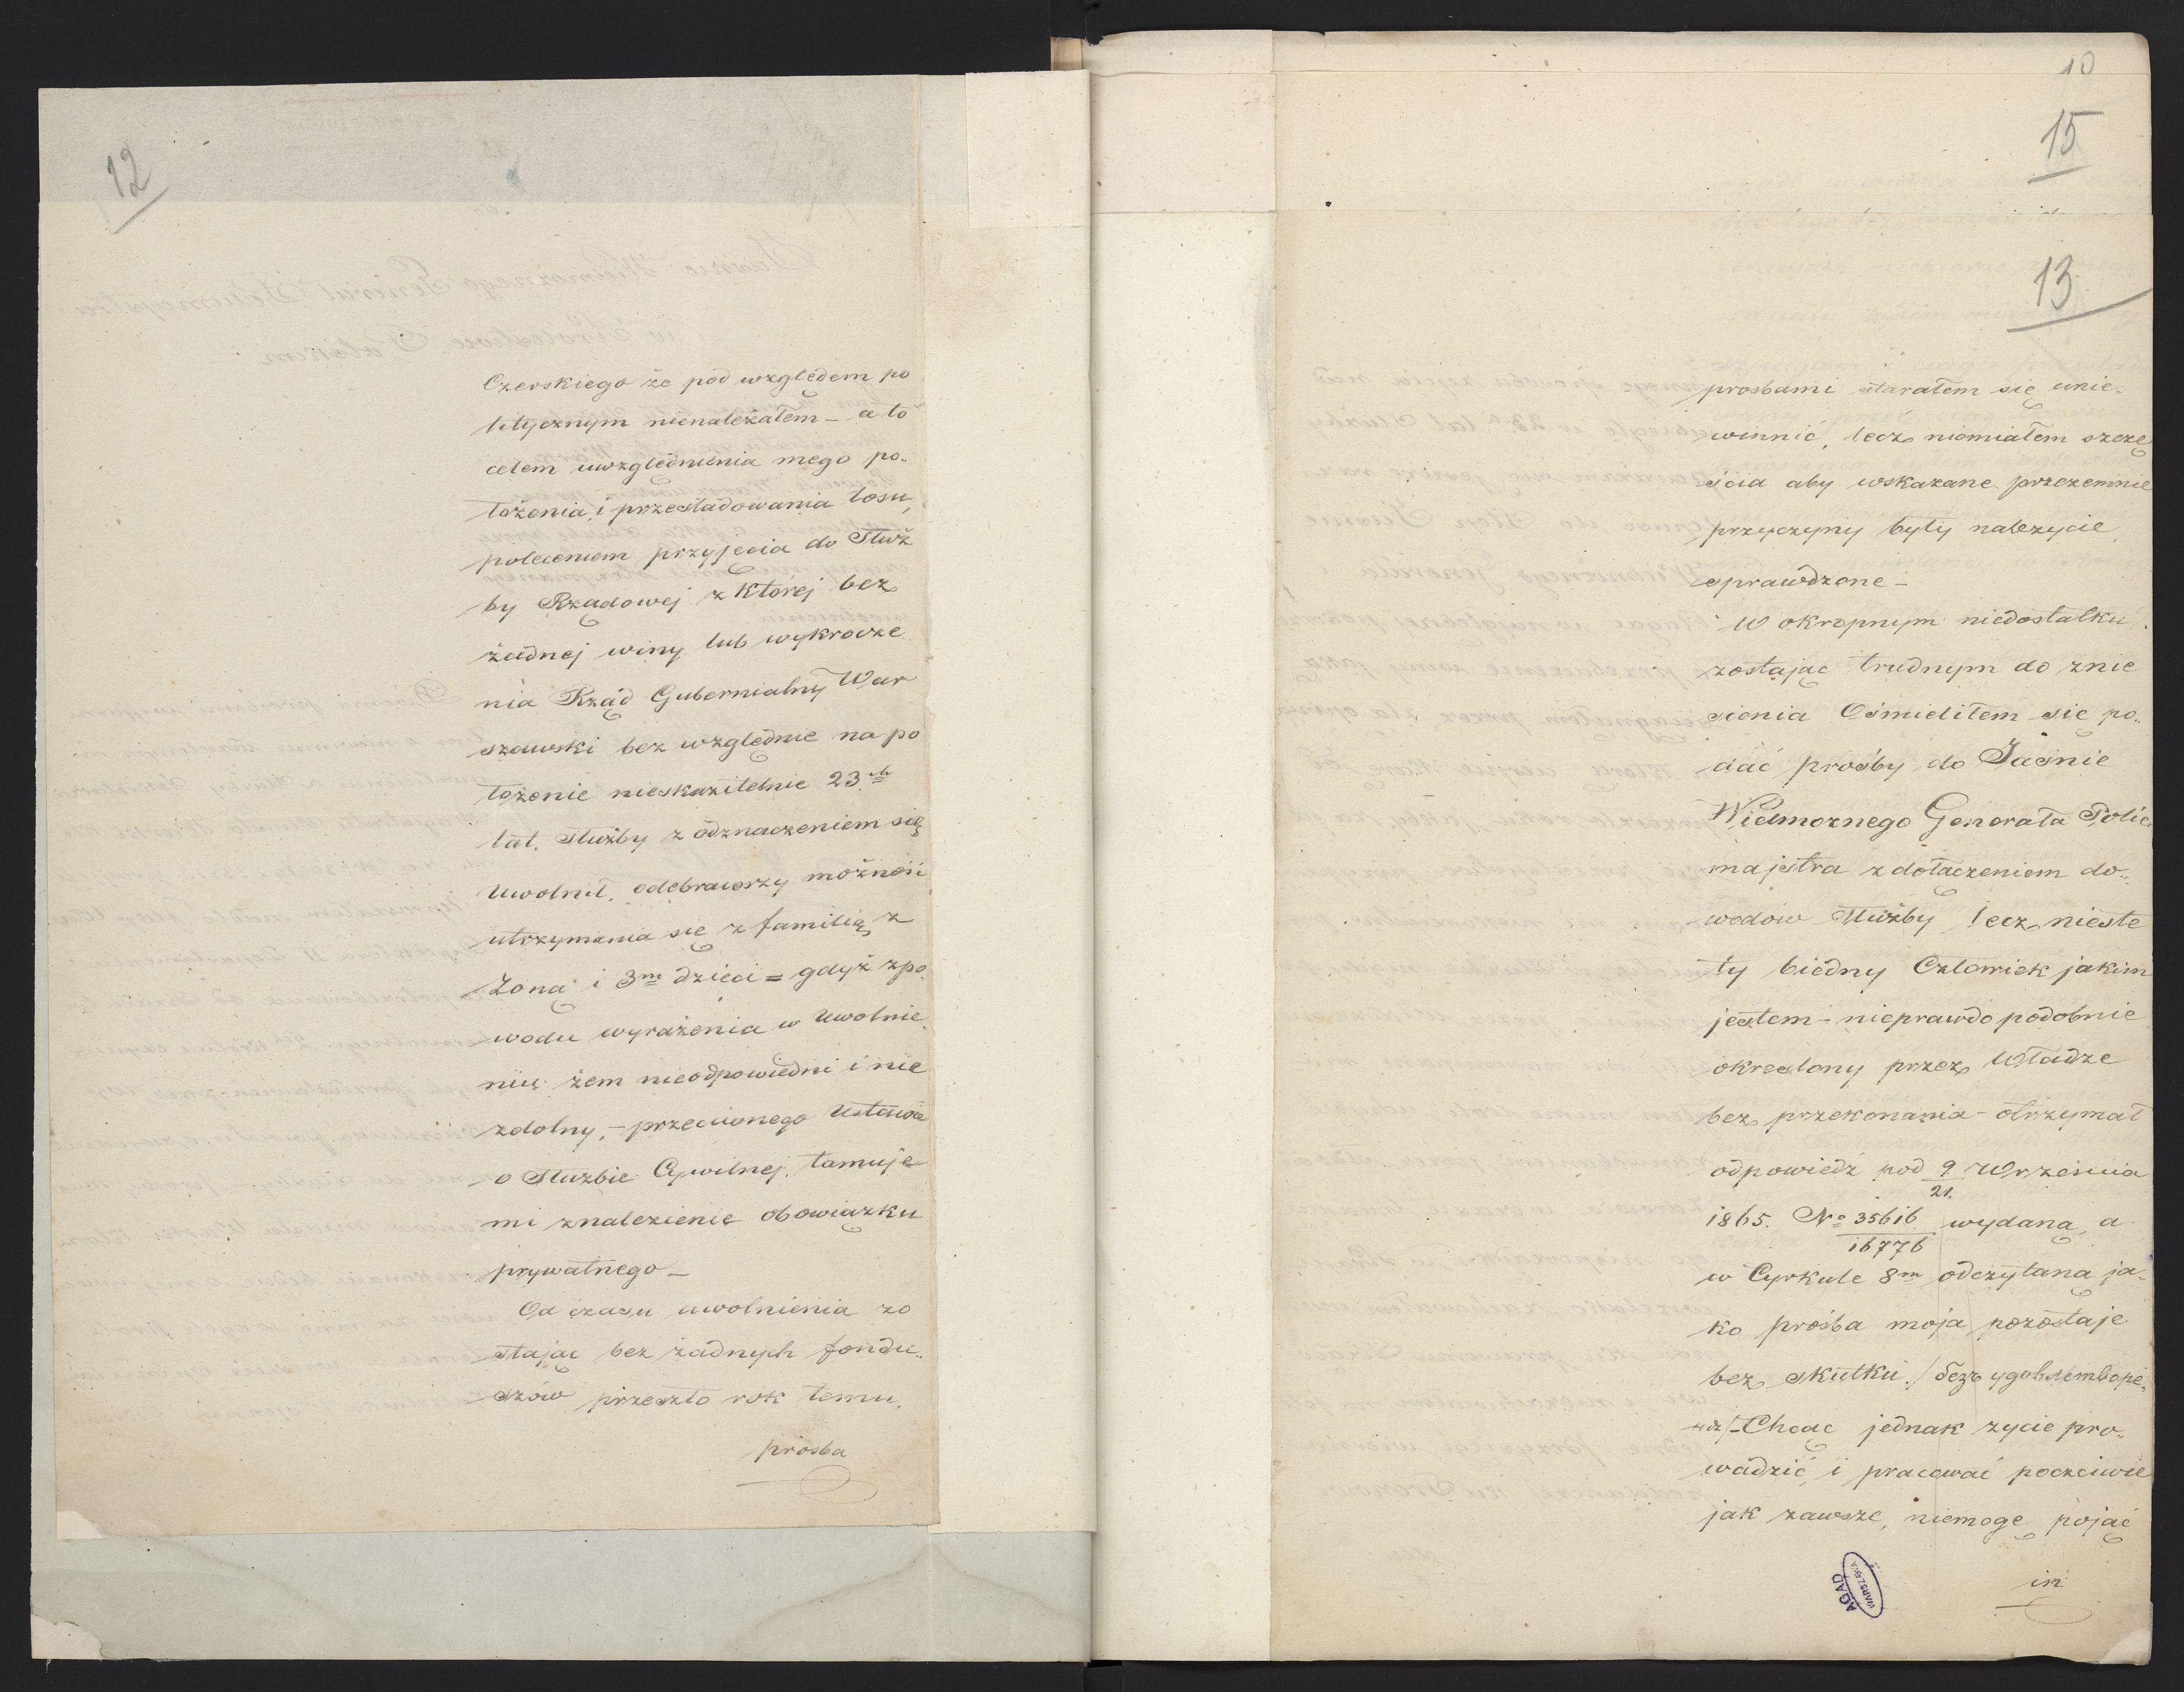 12
Czerskiego że pod względem po
litycznym nienależałem – a to
celem uwzględnienia mego po„
łożenia, i prześladowania losu,
poleceniem przyjęcia do Służ
by Rządowej z której bez
żadnej winy lub wykrocze
nia Rząd Gubernialny War
szawski bez względnie na po
łożenie nieskazitelnie 23.ch
lat. Służby z odznaczeniem się
Uwolnił, odebrawszy możność
utrzymania się z familią z
Żoną i 3m dzieci = gdyż zpo„
wodu wyrażenia w Uwolnie„
niu żem nieodpowiedni i nie
zdolny, – przeciwnego Ustawie
o Służbie Cywilnej, tamuje
mi znalezienie obowiązku
prywatnego –
Od czasu uwolnienia zo
stając bez żadnych fondu„
szów przeszło rok temu,
prośba
10
15
13
prosbami starałem się unie„
winnić, lecz niemiałem szczę
ścia aby wskazane przezemnie
przyczyny były nalezycie
sprawdzone –
W okropnym niedostatku
zostając trudnym do znie
sienia Ośmieliłem się po„
dać prośby do Jaśnie
Wielmoznego Generała Polic
majstra z dołączeniem do„
wodów Służby lecz nieste
ty biedny Człowiek jakim
jestem – nieprawdo podobnie
okreslony przez Władze
bez przekonania – otrzymał
odpowiedź pod 9/21 Wrzesnia
1865. No 35616/16776 wydaną, a
w Cyrkule 8m odczytana ja„
ko prośba moja pozostaje
bez skutku. / безъ
Chcąc jednak zycie pro„
wadzić i pracować poczciwie
jak zawsze, niemogę pojąć
in
AGAD
WARSZAWA